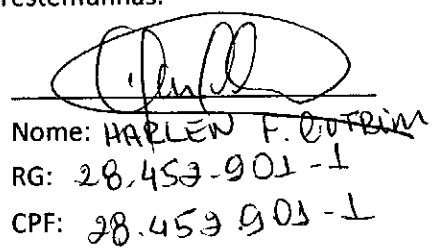 Testemunhas:
Nome: HARLEN F. CUTRIM
RG: 28.453-901-1
CPF: 28.453 901-1